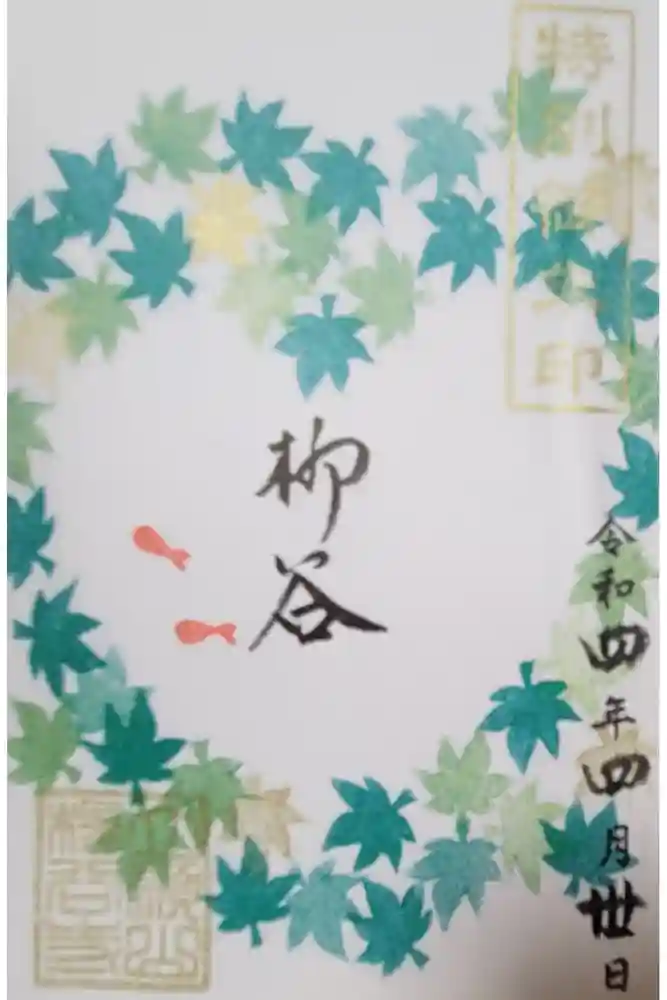 特別御朱印
柳谷
令和四年四月丗日